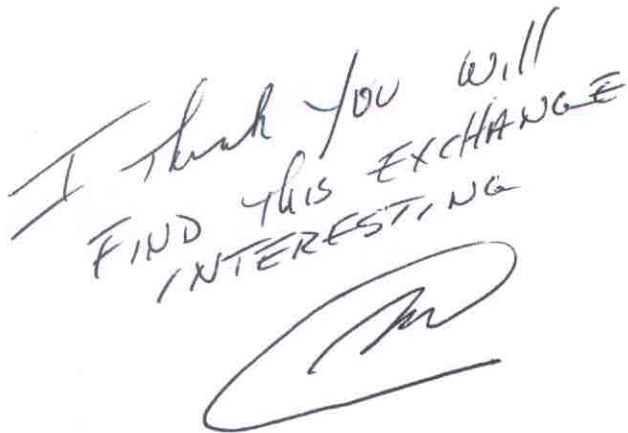 I think you will
FIND this EXCHANGE
INTERESTING